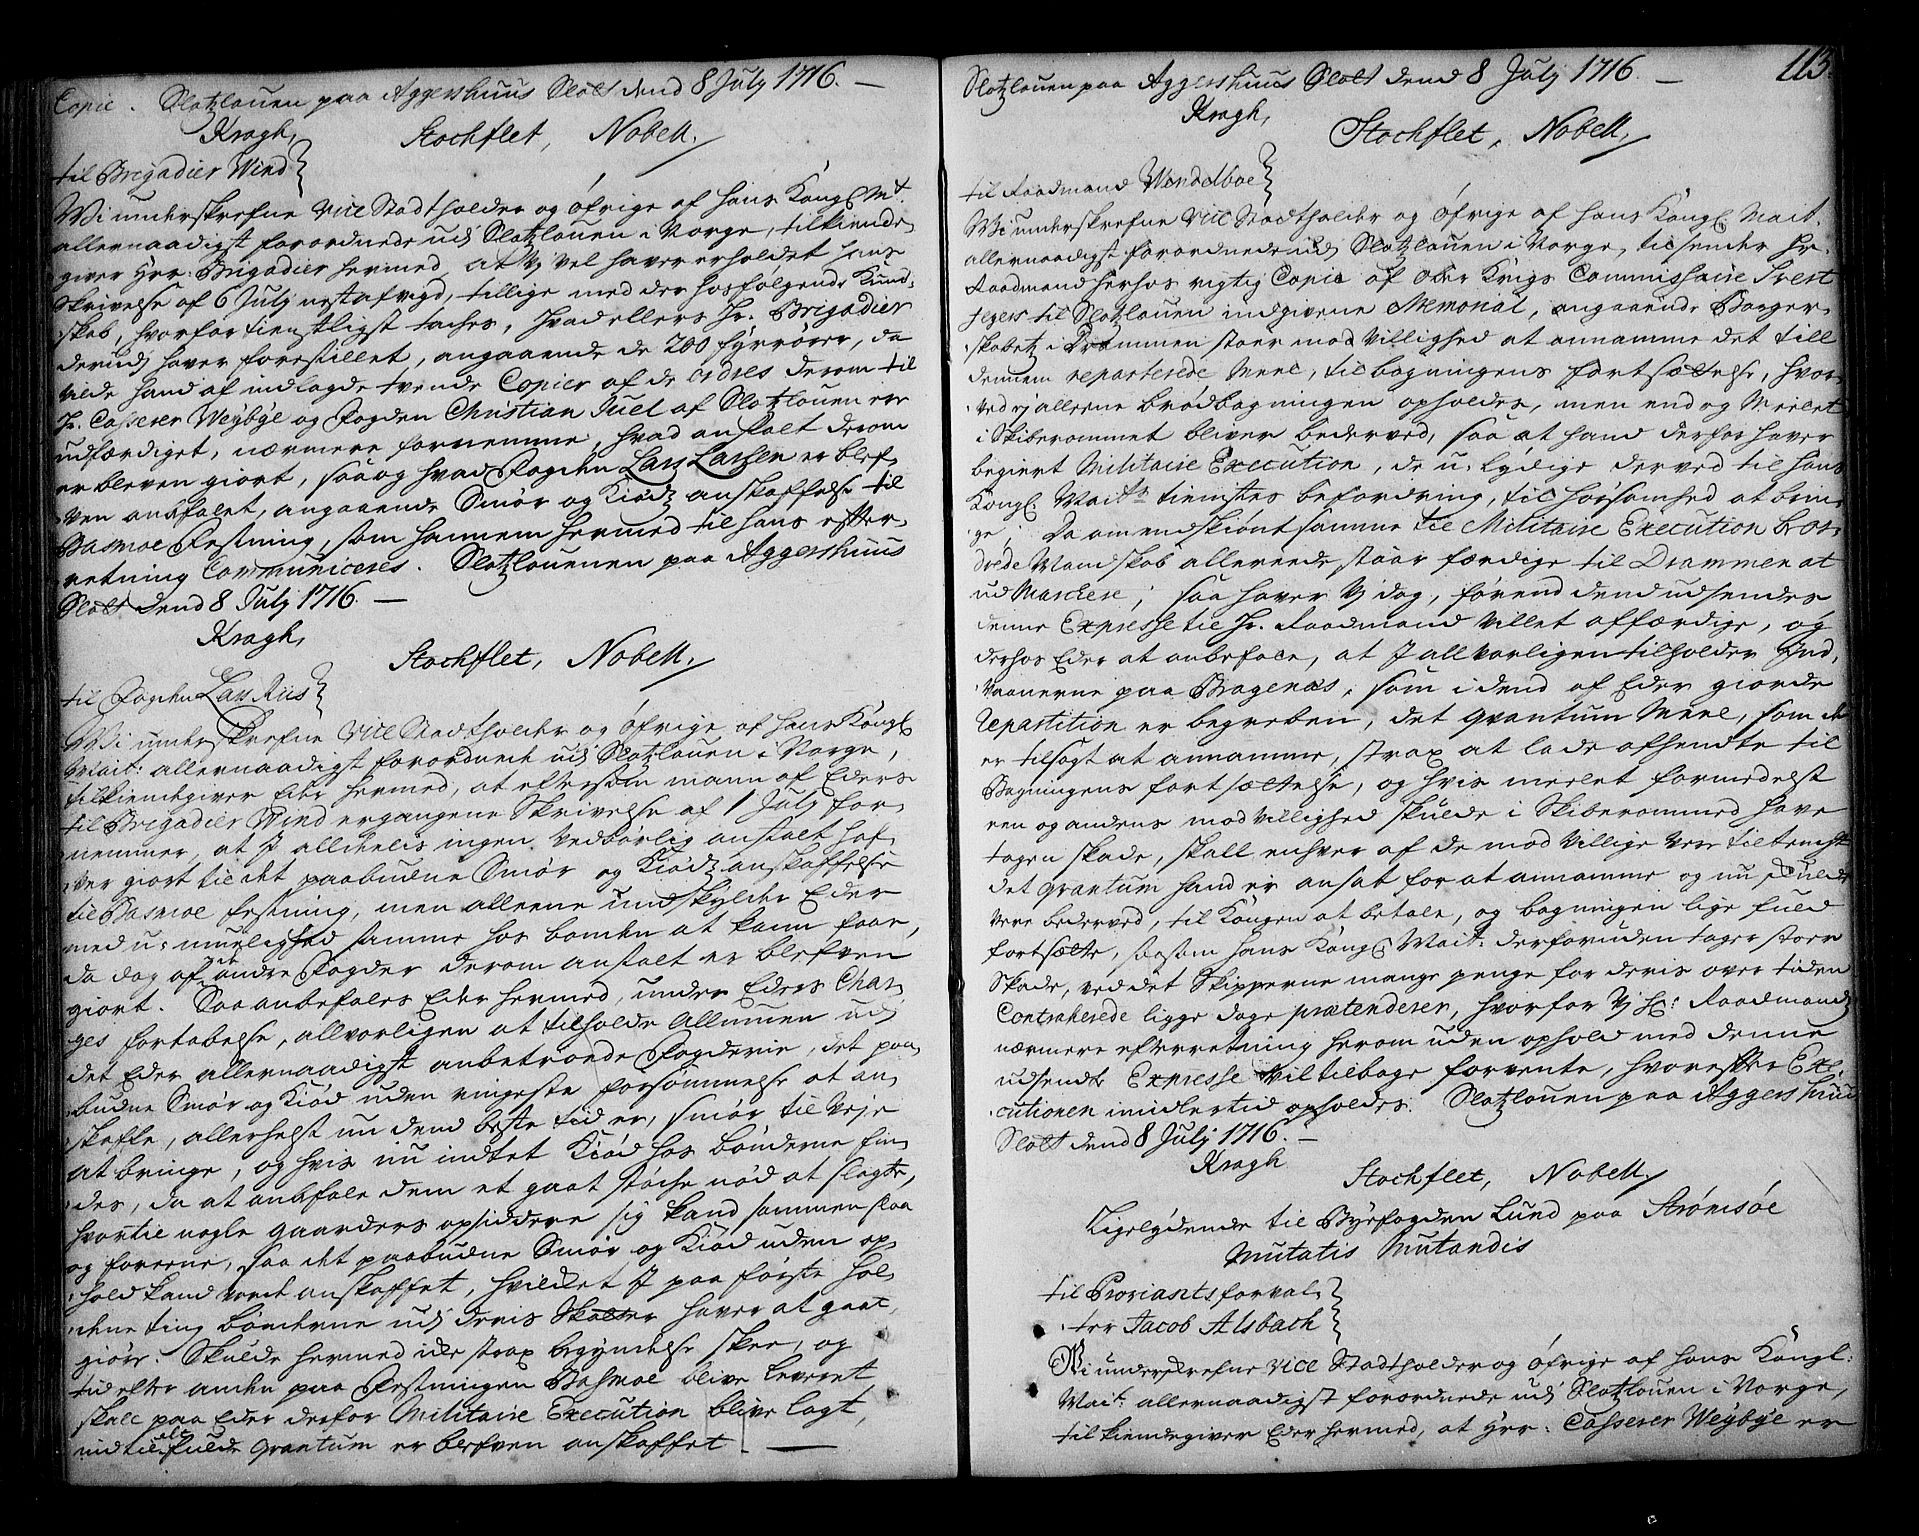 Copie. Slotzlouen paa Aggershuus Slott dend 8 July 1716. —
Kragh,
Stochflet, Nobell.
til Brigadier Wind
Wi underskrefne Vice Stadtholder og öfrige af hans Kongl Mt.
allernaadigst forordnede udj Slotzlouen i Norge, tilkiende-
giver Hrr: Brigadier hermed, at Vj vel haver erholdet hans
Skrivelse af 6 July nestafvigd, tillige med der hosfølgende Kund-
skab, hvorfor tienstligst tackes, hvad ellers Hr. Brigadier
derudj haver forestillet, angaaende de 200 fyrrörer, da
vilde hand af indlagde tvende Copier af de ordres derom til
Hr. Casserer Weybye og Fogden Christian Juel af Slotzlouen er
udferdiget, nærmere fornemme, hvad anstalt derom
er bleven giort, saa og hvad Fogden Lars Larsen er blef-
ven anbefalet, angaaende Smör og Kiödz anskaffelse til
Basmoe Festning, som hannem hermed til hans efter-
retning Communiceres. Slotzlouenen paa Aggershuus
Slott dend 8 July 1716. —
Kragh,
Stochflet, Nobell.
til Fogden Lars Riis
Wi underskrefne Vice Stadtholder og öfrige af hans Kongl
Mait: allernaadigst forordnede udj Slotzlouen i Norge,
tilkiendegiver Eder hermed, at eftersom mann af Eders
til Brigadier Wind ergangene Skrivelse af 1 July for-
nemmer, at I alldeelis ingen vedbörlig anstalt haf-
ver giort til det paabudne Smör og Kiödz anskaffelse
til Basmoe festning, men alleene undskylder Eder
med u-muelighed samme hos bonden at kunn faae,
da dog af de andre Fogder derom anstalt er blefven
giort. Saa anbefales Eder hermed, under Eders Char-
ges fortabelse, allvorligen at tilholde Allmuen udj
det Eder allernaadigst anbetroede Fogderie, det paa-
budne Smör og Kiöd uden ringeste forsömmelse at an-
skaffe, allerhelst nu dend beste tid er, smör til veje
at bringe, og hvis nu indtet Kiöd hos bönderne fin-
des, da at anbefale dem et gaat stöche nöd at slagte,
hvortil nogle gaarders opsiddere sig kand sammen slaa
og forene, saa det paabudne Smör og Kiöd uden op-
hold kand vorde anskaffet, hvilcket I paa förste hol-
dene ting bönderne udj deris Skatter haver at gaat-
giöre. Skulde hermed icke strax begyndelse skee, og
tid efter anden paa Festningen Basmoe blive leveret
skall paa Eder derfor Militaire Execution blive lagt,
indtil alle fulde qvantum er blefven anskaffet —
113.
Slotzlouen paa Aggershuus Slott dend 8 July 1716. —
Kragh,
Stochflet, Nobell.
til Raadmand Wendelboe
Wi underskrefne Vice Stadtholder og öfrige af hans Kongl. Mait.
allernaadigst forordnede udj Slotzlouen i Norge, tilsender Hr.
Raadmand herhos rigtig Copie af Ober Krigs Commissaire Trest
jegers til Slotzlouen indgivene Memorial, angaaende Borger-
skabetz i Drammen stoer modvillighed at annamme det till
dennem reparterede Meel, til bagningens fortsættelse, hvor-
ved ej alleene brödbagningen opholdes, men end og Meelet
i Skiberommet bliver bederved, saa at hand derfor haver
begiert Militaire Execution, de u-lydige derved til hans
Kongl. Maits tienistes befordring, til hörsomhed at brin-
ge; Da omendskiönt samme til Militaire Execution beor-
drede Mandskab allereede staar færdige til Drammen at
ud Marchere; saa haver Vj dog, förend dend udsendes
denne Expresse til Hr. Raadmand villet affærdige, og
derhos Eder at anbefale, at I allvorligen tilholder Ind-
vaanerne paa Bragenæs, som i dend af Eder giorde
Repartition er begreben, det qvantum Meel, som de
er tilsagt at annamme, strax at lade afhendte til
Bagningens fortsættelse, og hvis meelet formedelst
een og andens modvillighed skulde i Skiberommed have
tagen skade, skall enhver af de modvillige være tiltenckt
det qvantum hand er ansat for at annamme og nu skulde
være bederved, til Kongen at betale, og bagningen lige fuld
fortsætte, saasom hans Kongl Mait: derforuden tager stoer
Skade, ved det Skipperne mange penge for deris over tiden
Contraherede ligge dage prætenderer, hvorfor Vj Hr: Raadmand
nærmere efterretning herom uden ophold med denne
udsendte Expresse vil tilbage forvente, hvorefter Exe-
cutionen imidlertid opholdes. Slotzlouen paa Aggershuus
Slott dend 8 July 1716. —
Kragh
Stochflet, Nobell.
Ligelydende til Byefogden Lund paa Strömsöe
Mutatis Mutandis
til Proviantsforval-
ter Jacob Alsbach
Wi underskrefne Vice Stadtholder og öfrige af hans Kongl:
Mait: allernaadigst forordnede udj Slotzlouen i Norge,
tilkiendegiver Eder hermed, at Hrr: Casserer Weybye er